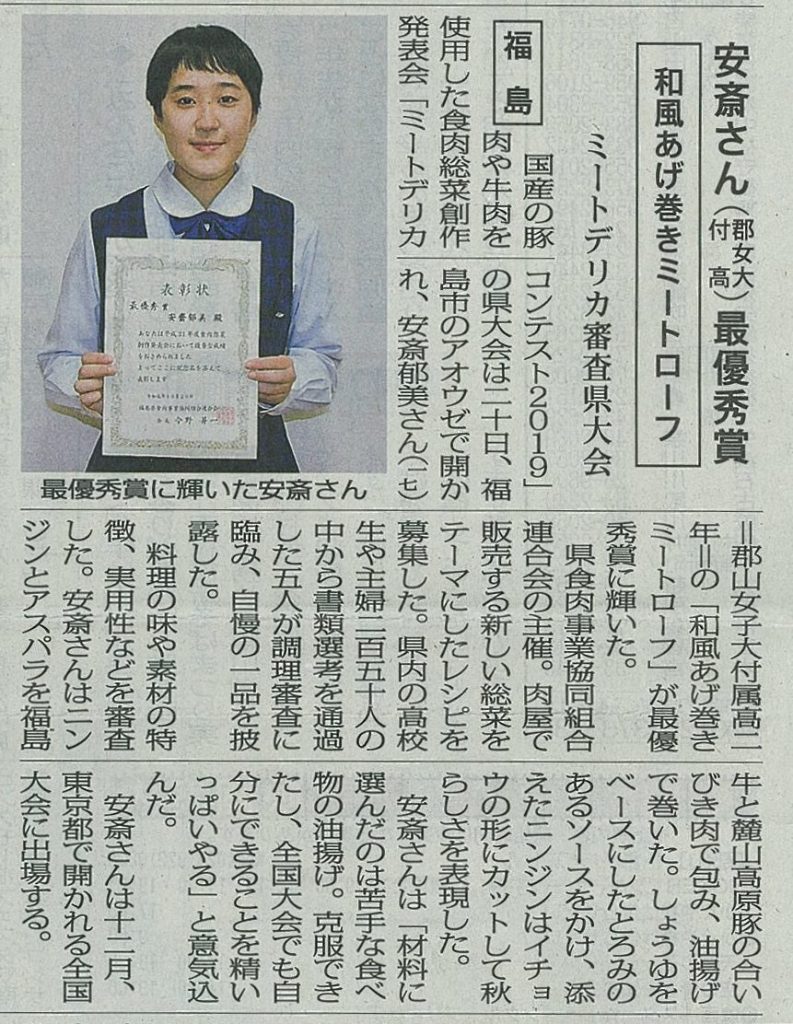 安斎さん(郡女大付高)最優秀賞
和風あげ巻きミートローフ
ミートデリカ審査県大会
福島
国産の豚
肉や牛肉を
使用した食肉総菜創作
発表会「ミートデリカ
コンテスト2019」
の県大会は二十日、福
島市のアオウゼで開か
れ、安斎郁美さん(一七)
=郡山女子大付属高二
年=の「和風あげ巻き
ミートローフ」が最優
秀賞に輝いた。
県食肉事業協同組合
連合会の主催。肉屋で
販売する新しい総菜を
テーマにしたレシピを
募集した。県内の高校
生や主婦二百五十人の
中から書類選考を通過
した五人が調理審査に
臨み、自慢の一品を披
露した。
料理の味や素材の特
徴、実用性などを審査
した。安斎さんはニン
ジンとアスパラを福島
牛と麓山高原豚の合い
びき肉で包み、油揚げ
で巻いた。しょうゆを
ベースにしたとろみの
あるソースをかけ、添
えたニンジンはイチョ
ウの形にカットして秋
らしさを表現した。
安斎さんは「材料に
選んだのは苦手な食べ
物の油揚げ。克服でき
たし、全国大会でも自
分にできることを精い
っぱいやる」と意気込
んだ。
安斎さんは十二月、
東京都で開かれる全国
大会に出場する。
最優秀賞に輝いた安斎さん
表彰状
最優秀賞
安齋郁美 殿
あなたは平成31年度食肉惣菜
創作発表会において優秀な成績
を収められました
よってここに記念品を添えて
表彰します
福島県食肉事業協同組合連合会
会長 今野